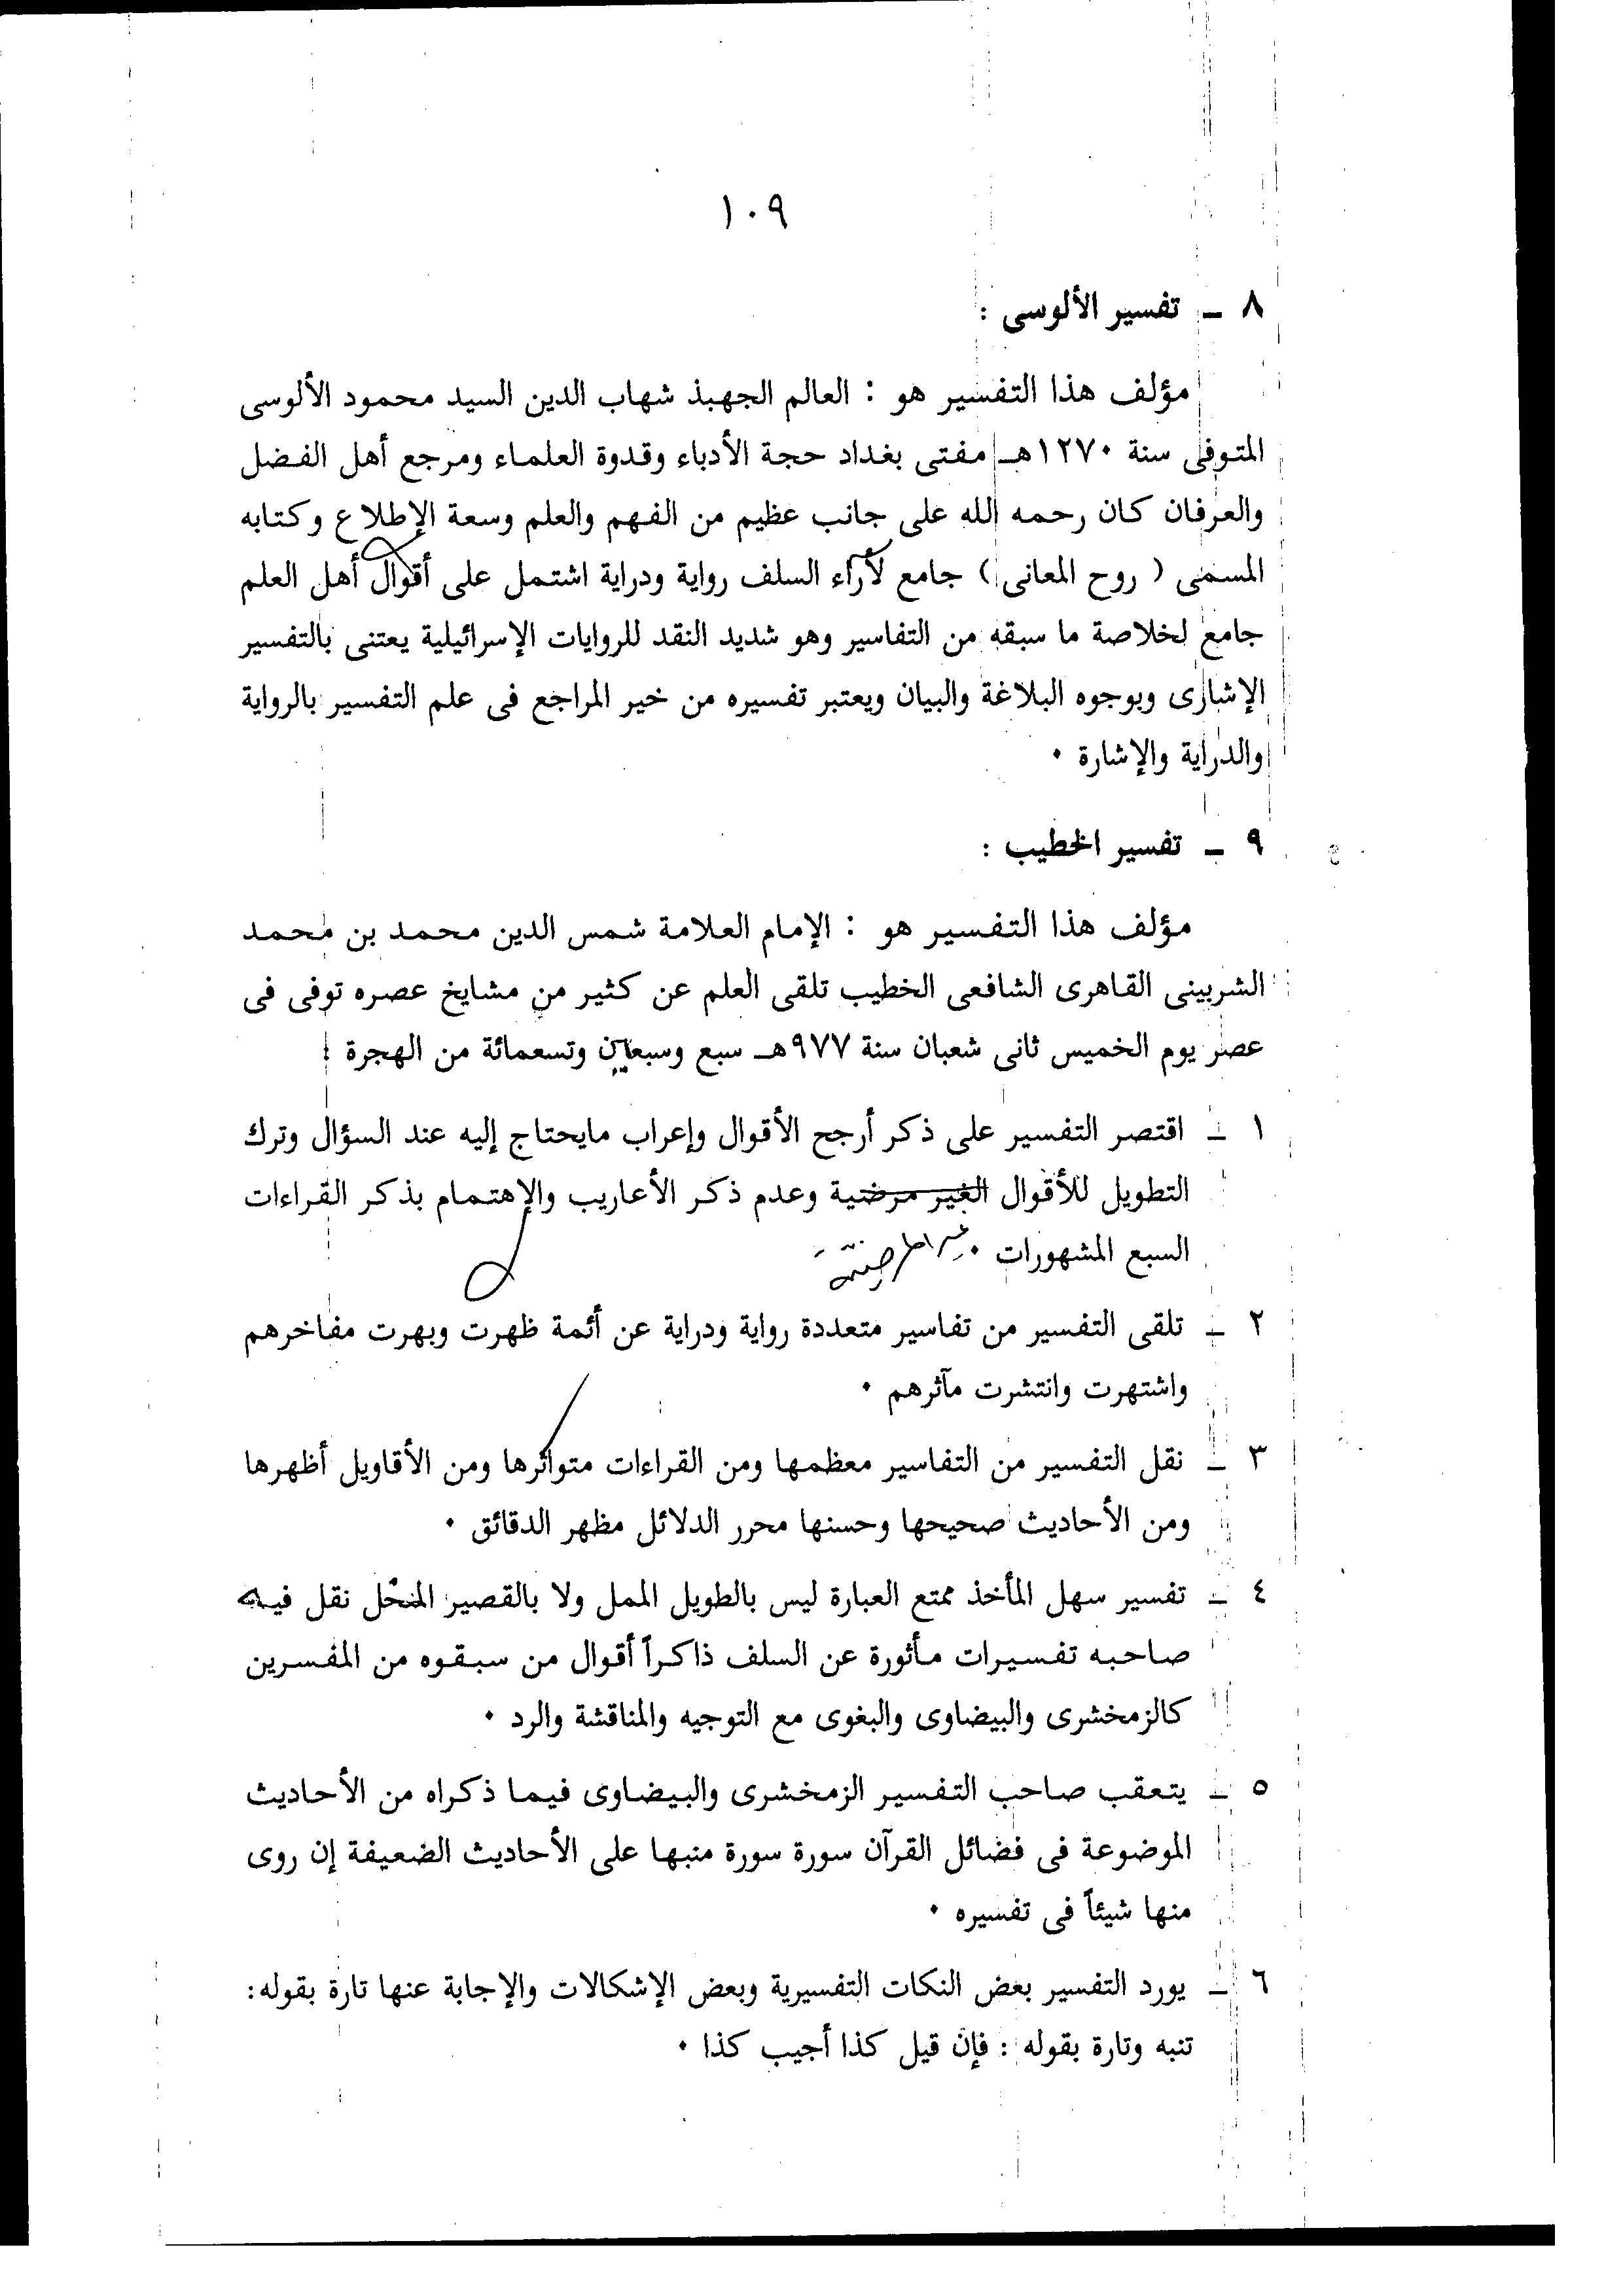 ١٠٩
٨ ـ تفسير الألوسى :
مؤلف هذا التفسير هو : العالم الجهبذ شهاب الدين السيد محمود الألوسى
المتوفى سنة ١٢٧٠هـ مفتى بغداد حجة الأدباء وقدوة العلماء ومرجع أهل الفضل
والعرفان كان رحمه الله على جانب عظيم من الفهم والعلم وسعة الإطلاع وكتابه
المسمى ( روح المعانى ) جامع لأراء السلف رواية ودراية اشتمل على أقوال أهل العلم
جامع لخلاصة ما سبقه من التفاسير وهو شديد النقد للروايات الإسرائيلية يعتنى بالتفسير
الإشارى وبوجوه البلاغة والبيان ويعتبر تفسيره من خير المراجع فى علم التفسير بالرواية
والدراية والإشارة .
٩ ـ تفسير الخطيب :
مؤلف هذا التفسير هو : الإمام العلامة شمس الدين محمد بن محمد
الشربينى القاهرى الشافعى الخطيب تلقى العلم عن كثير من مشايخ عصره توفى فى
عصر يوم الخميس ثانى شعبان سنة ٩٧٧هـ سبع وسبعين وتسعمائة من الهجرة :
١ ـ اقتصر التفسير على ذكر أرجح الأقوال وإعراب مايحتاج إليه عند السؤال وترك
التطويل للأقوال الغير مرضية وعدم ذكر الأعاريب والإهتمام بذكر القراءات
السبع المشهورات . غير المرضيّة
٢ ـ تلقى التفسير من تفاسير متعددة رواية ودراية عن أئمة ظهرت وبهرت مفاخرهم
واشتهرت وانتشرت مآثرهم .
٣ ـ نقل التفسير من التفاسير معظمها ومن القراءات متواترها ومن الأقاويل أظهرها
ومن الأحاديث صحيحها وحسنها محرر الدلائل مظهر الدقائق .
٤ ـ تفسير سهل المأخذ ممتع العبارة ليس بالطويل الممل ولا بالقصير المخل نقل فيه
صاحبه تفسيرات مأثورة عن السلف ذاكراً أقوال من سبقوه من المفسرين
كالزمخشرى والبيضاوى والبغوى مع التوجيه والمناقشة والرد .
٥ ـ يتعقب صاحب التفسير الزمخشرى والبيضاوى فيما ذكراه من الأحاديث
الموضوعة فى فضائل القرآن سورة سورة منبها على الأحاديث الضعيفة إن روى
منها شيئاً فى تفسيره .
٦ ـ يورد التفسير بعض النكات التفسيرية وبعض الإشكالات والإجابة عنها تارة بقوله:
تنبه وتارة بقوله : فإن قيل كذا أجيب كذا .